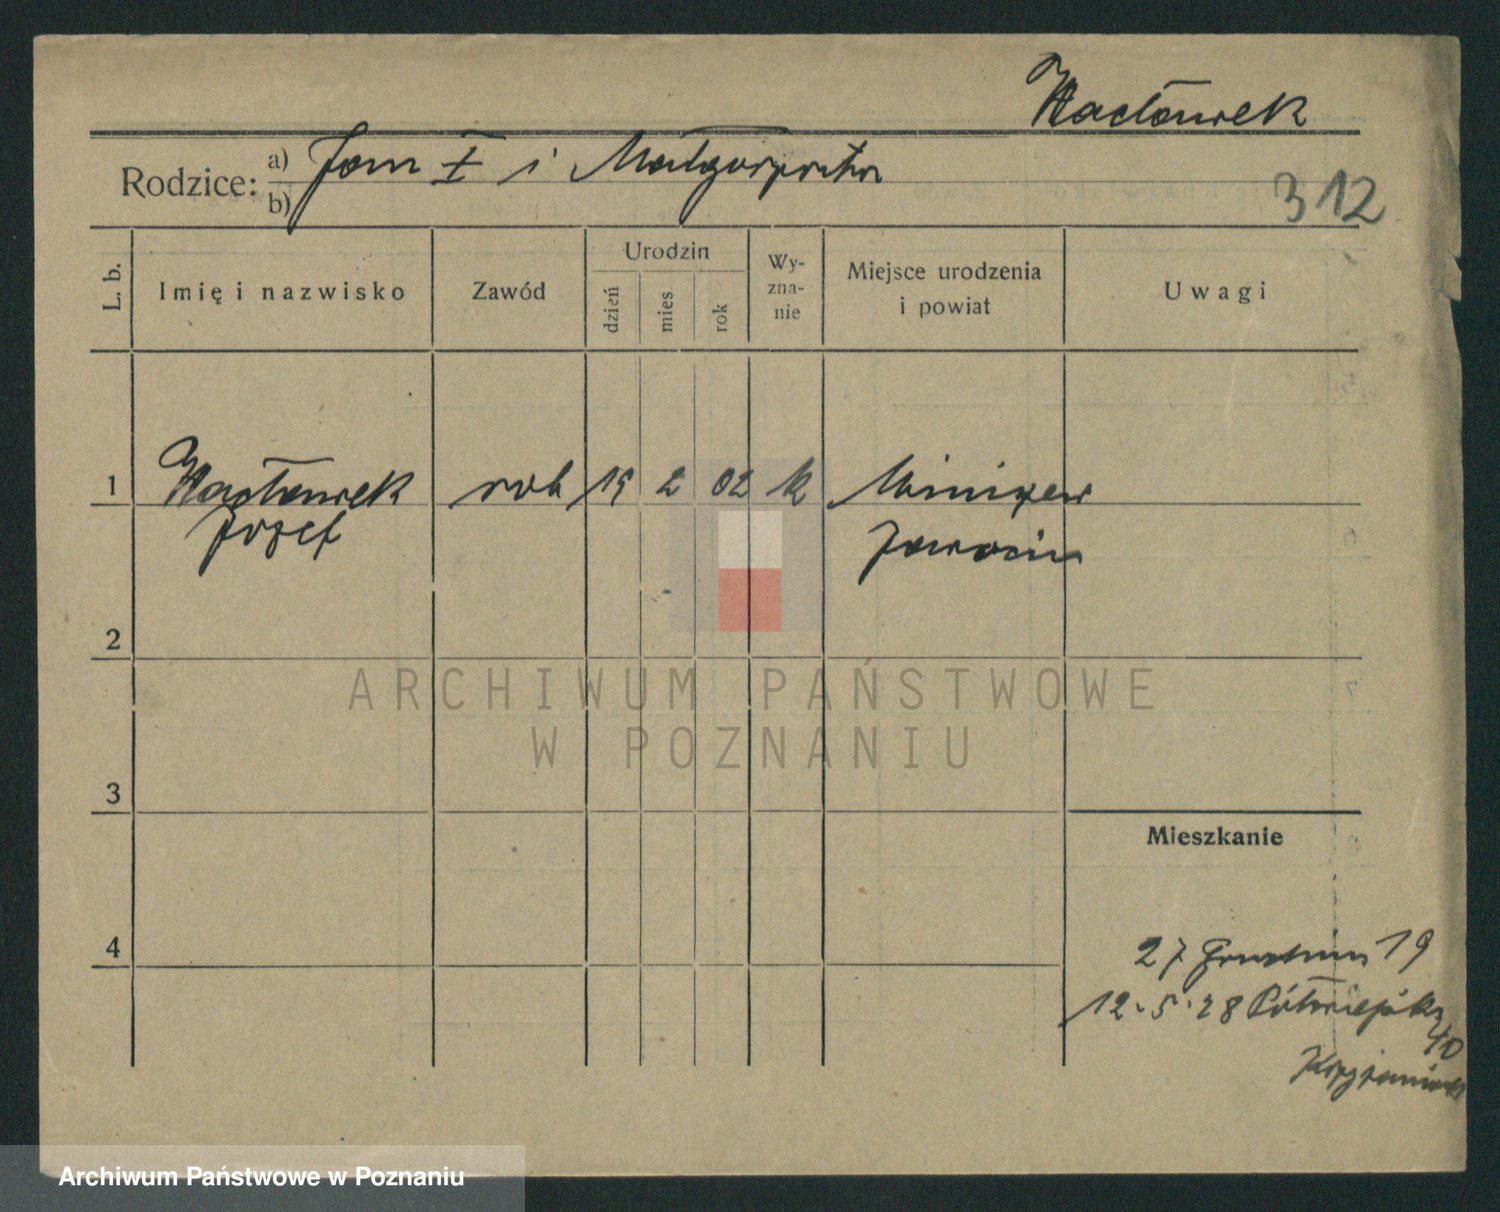 Wacławek
Rodzice: a) Jan I i Małgorzata
b)
312
L. b.
Imię i nazwisko
Zawód
Urodzin
dzień
mies
rok
Wy-
zna-
nie
Miejsce urodzenia
i powiat
Uwagi
1 Wacławek rob 15 2 02 k
Józef Jarocin
2
ARCHIWUM PAŃSTWOWE
W POZNANIU
3
Mieszkanie
4
27 19
12.5.28 Półwiejska
40
Archiwum Państwowe w Poznaniu